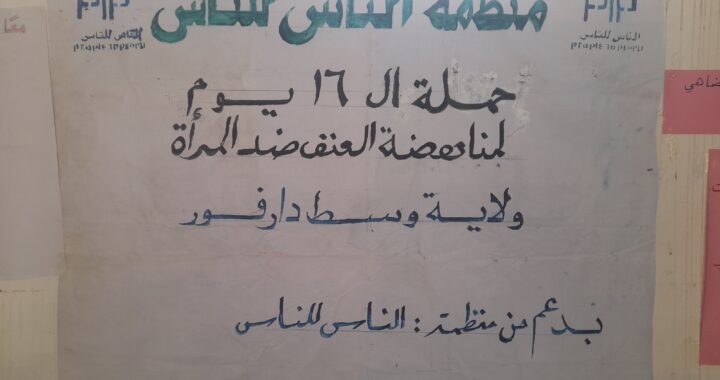 منظمة الناس للناس
الناس للناس
PEOPLE TO PEOPLE
الناس للناس
PEOPLE TO PEOPLE
حملة ال ١٦ يوم
لمناهضة العنف ضد المرأة
ولاية وسط دارفور
بدعم من منظمة : الناس للناس